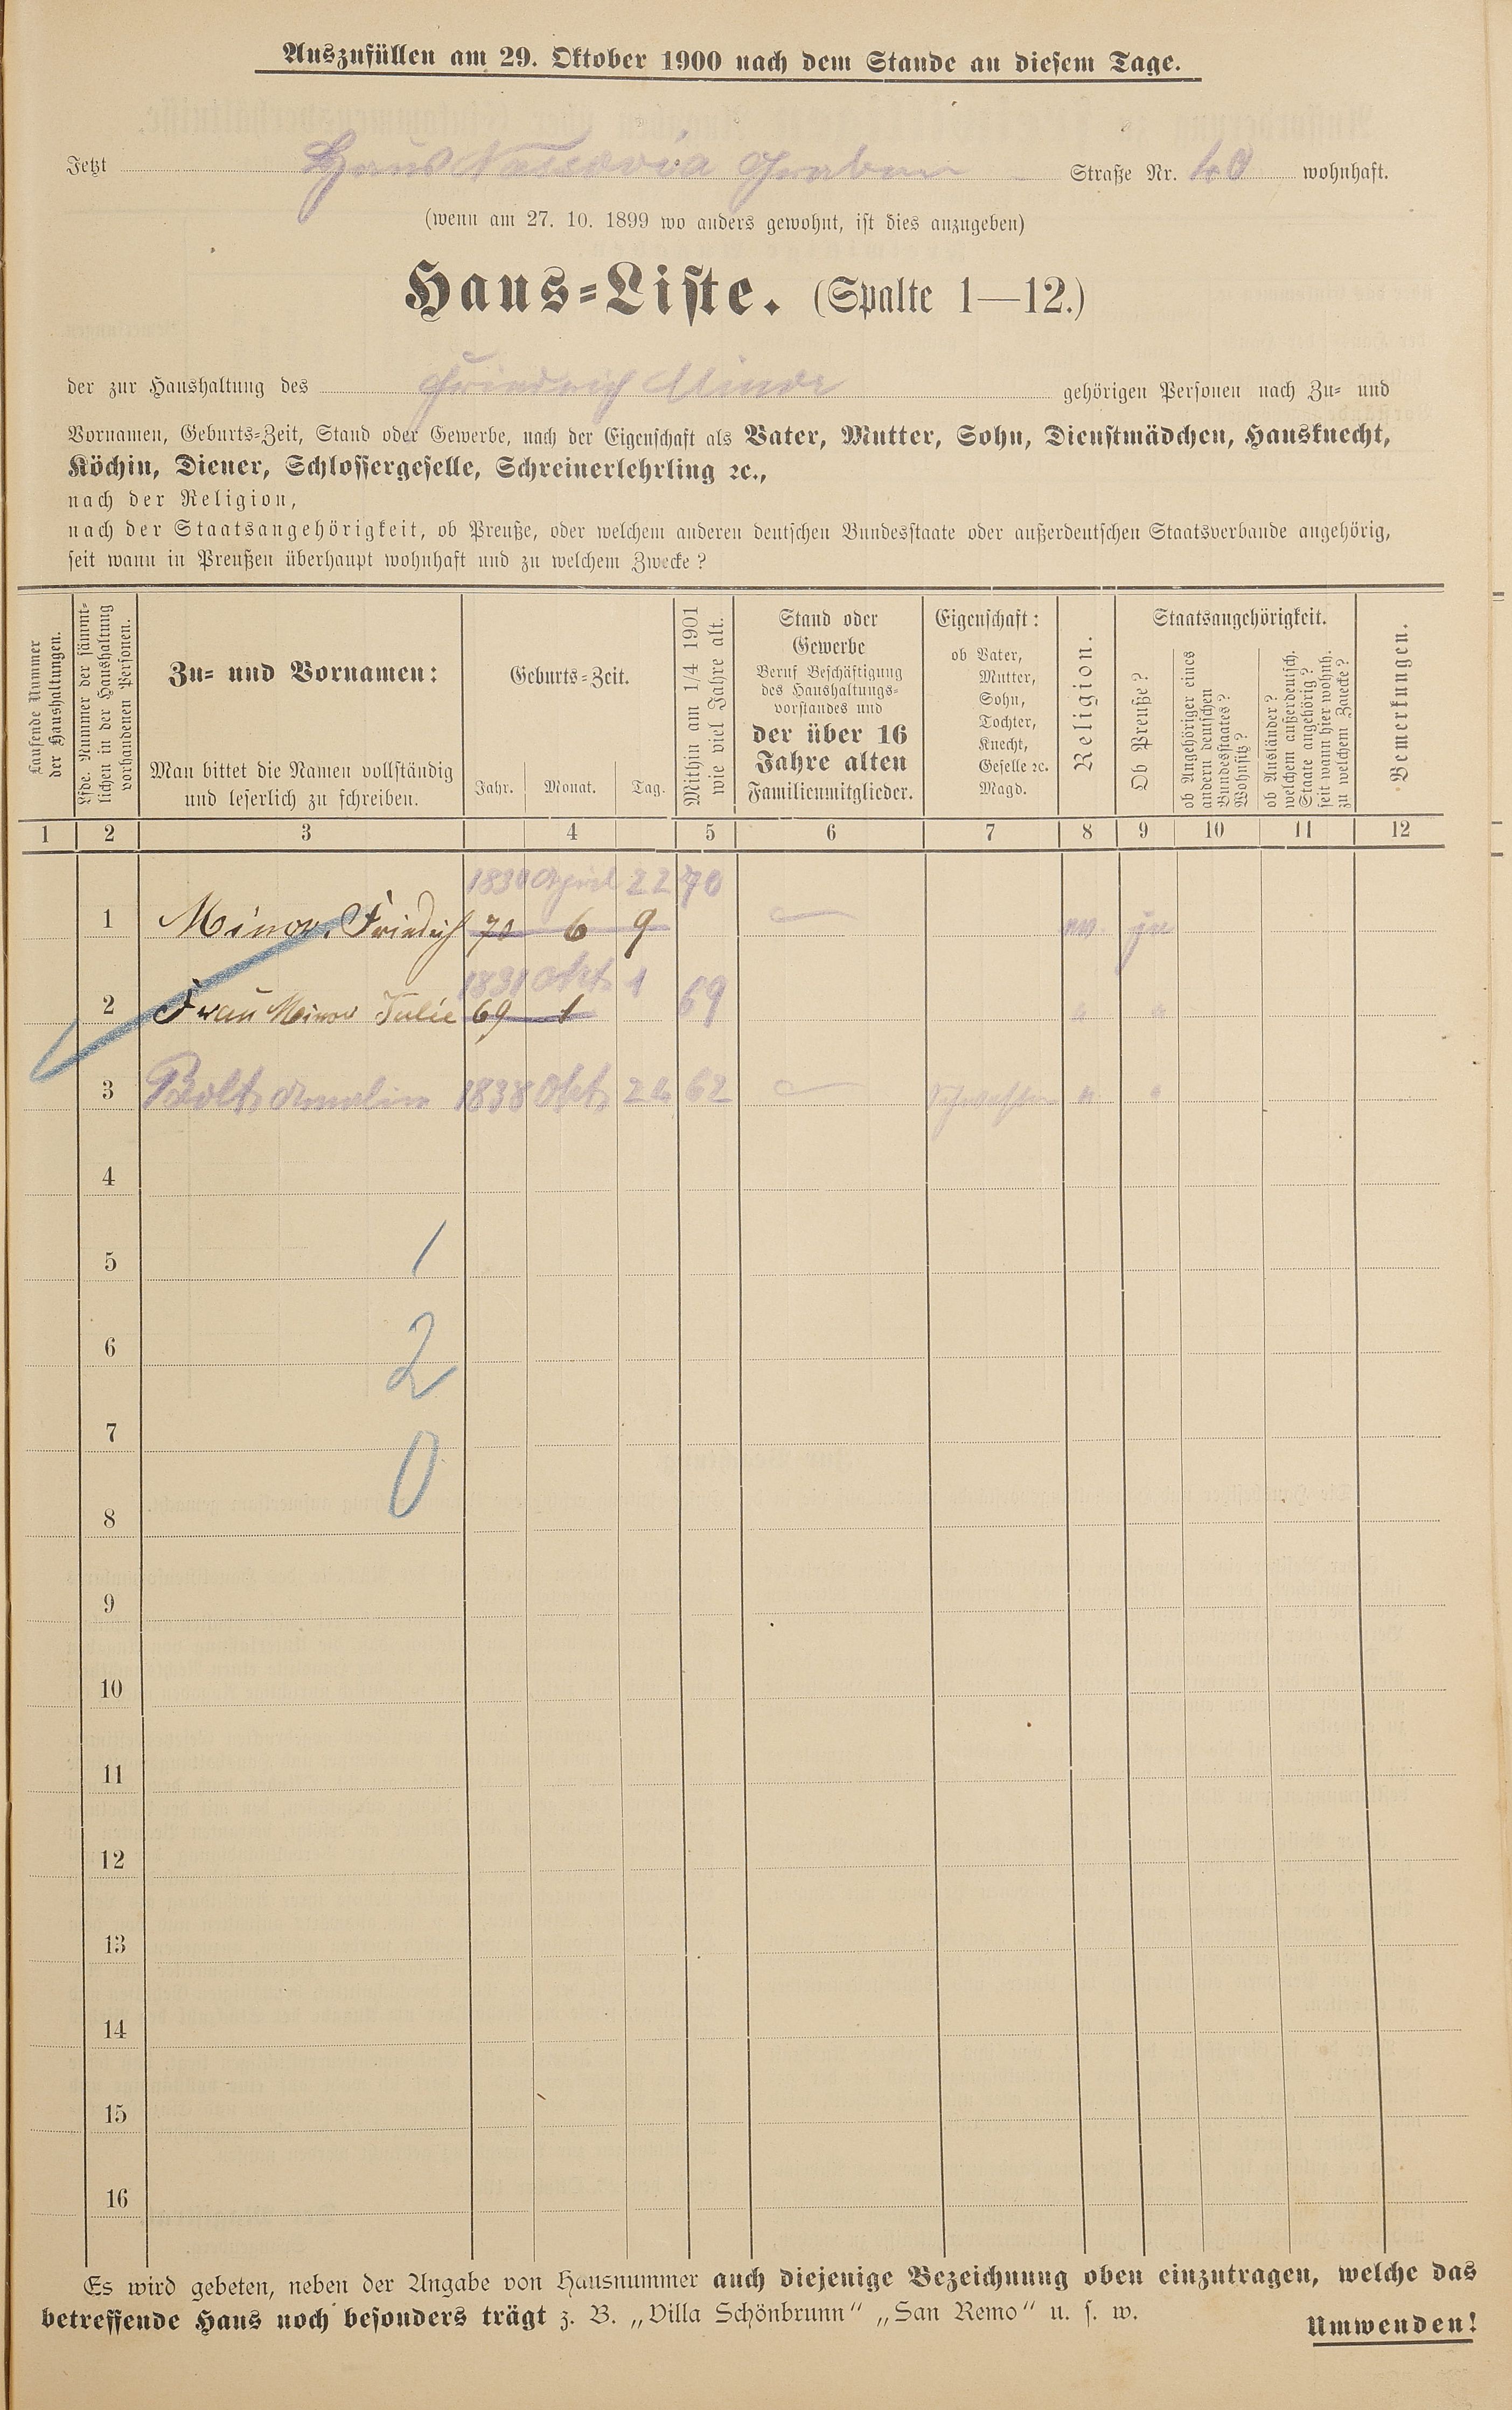 Auszufüllen am 29. Oktober 1900 nach dem Stande an diesem Tage.
Jetzt Haus Nassovia Graben Straße Nr. 40 wohnhaft.
(wenn am 27. 10. 1899 wo anders gewohnt, ist dies anzugeben)
Haus-Liste. (Spalte 1—12.)
der zur Haushaltung des Friedrich Minor gehörigen Personen nach Zu- und
Vornamen, Geburts-Zeit, Stand oder Gewerbe, nach der Eigenschaft als Vater, Mutter, Sohn, Dienstmädchen, Hausknecht,
Köchin, Diener, Schlossergeselle, Schreinerlehrling ꝛc.,
nach der Religion,
nach der Staatsangehörigkeit, ob Preuße, oder welchem anderen deutschen Bundesstaate oder außerdeutschen Staatsverbande angehörig,
seit wann in Preußen überhaupt wohnhaft und zu welchem Zwecke?
Laufende Nummer
der Haushaltungen.
Lfde. Nummer der sämmt-
lichen in der Haushaltung
vorhandenen Personen.
Zu- und Vornamen:
Man bittet die Namen vollständig
und leserlich zu schreiben.
Geburts-Zeit.
Jahr. Monat. Tag.
Mithin am 1/4 1901
wie viel Jahre alt.
Stand oder
Gewerbe
Beruf Beschäftigung
des Haushaltungs-
vorstandes und
der über 16
Jahre alten
Familienmitglieder.
Eigenschaft:
ob Vater,
Mutter,
Sohn,
Tochter,
Knecht,
Geselle ꝛc.
Magd.
Religion.
Staatsangehörigkeit.
Ob Preuße?
ob Angehöriger eines
andern deutschen
Bundesstaates?
Wohnsitz?
ob Ausländer?
welchem außerdeutsch.
Staate angehörig?
seit wann hier wohnh.
zu welchem Zwecke?
Bemerkungen.
1 2 3 4 5 6 7 8 9 10 11 12
1830 April 22 70
1 Minor, Friedrich 70 6 9 — ev. ja
1831 Okt 1
2 Frau Minor Julie 69 1 69 " "
3 Amalie 1838 Okt 24 62 — Schwester " "
4
5 1
6 2
7
8 0
9
10
11
12
13
14
15
16
Es wird gebeten, neben der Angabe von Hausnummer auch diejenige Bezeichnung oben einzutragen, welche das
betreffende Haus noch besonders trägt z. B. „Villa Schönbrunn“ „San Remo“ u. s. w.
Umwenden!